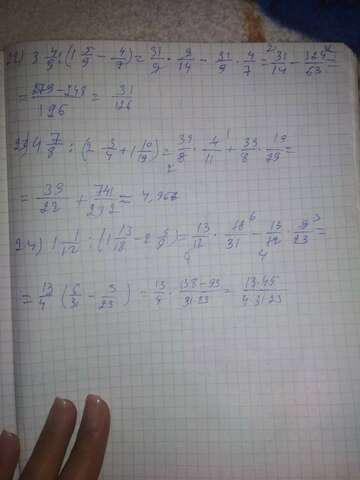 22) 3 4/9 : (1 5/9 - 4/7) = 31/9 · 9/14 - 31/9 · 4/7 = 31/14 - 124/63 =
= 279-248/126 = 31/126
23) 4 7/8 : (2 3/4 + 1 10/19) = 39/8 · 4/11 + 39/8 · 19/29 =
= 39/22 + 741/232 ≈ 4,967
24) 1 1/12 : (1 13/18 - 2 5/9) = 13/12 · 18/31 - 13/12 · 9/23 =
= 13/4 (6/31 - 3/23) = 13/4 · 138-93/31·23 = 13·45/4·31·23